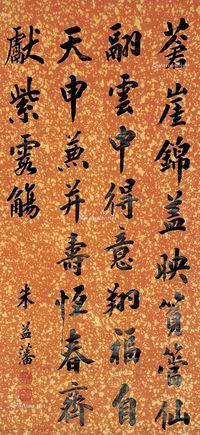 蒼崖錦蓋映篔簹仙
翮雲中得意翔福自
天申兼并壽恒春齊
獻紫霞觴
朱益藩